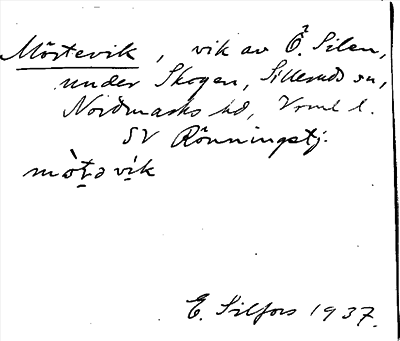 Mörtevik, vik av Ö. Silen,
under Skogen, Silleruds sn,
Nordmarks hd, Vrml l.
SV Rönningstj.
mò̱t̲ə vi̲k
E. Silfors 1937.